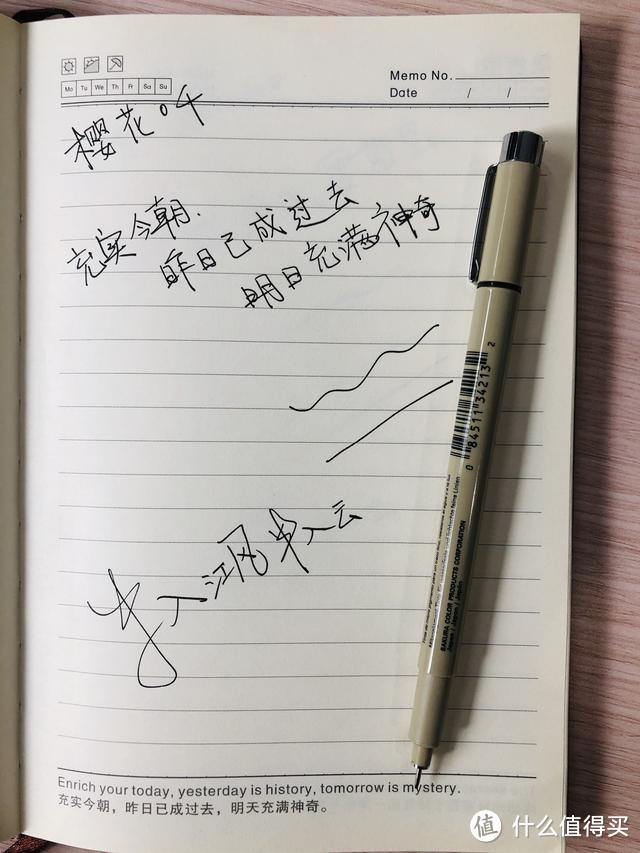 Mo Tu We Th Fr Sa Su
Memo No.
Date / /
樱花
充实今朝.
昨日已成过去
明日充满神奇
半入江风半入云
0 84511 34213 2
SAKURA COLOR PRODUCTS CORPORATION
Enrich your today, yesterday is history, tomorrow is mystery.
充实今朝，昨日已成过去，明天充满神奇。
值 什么值得买